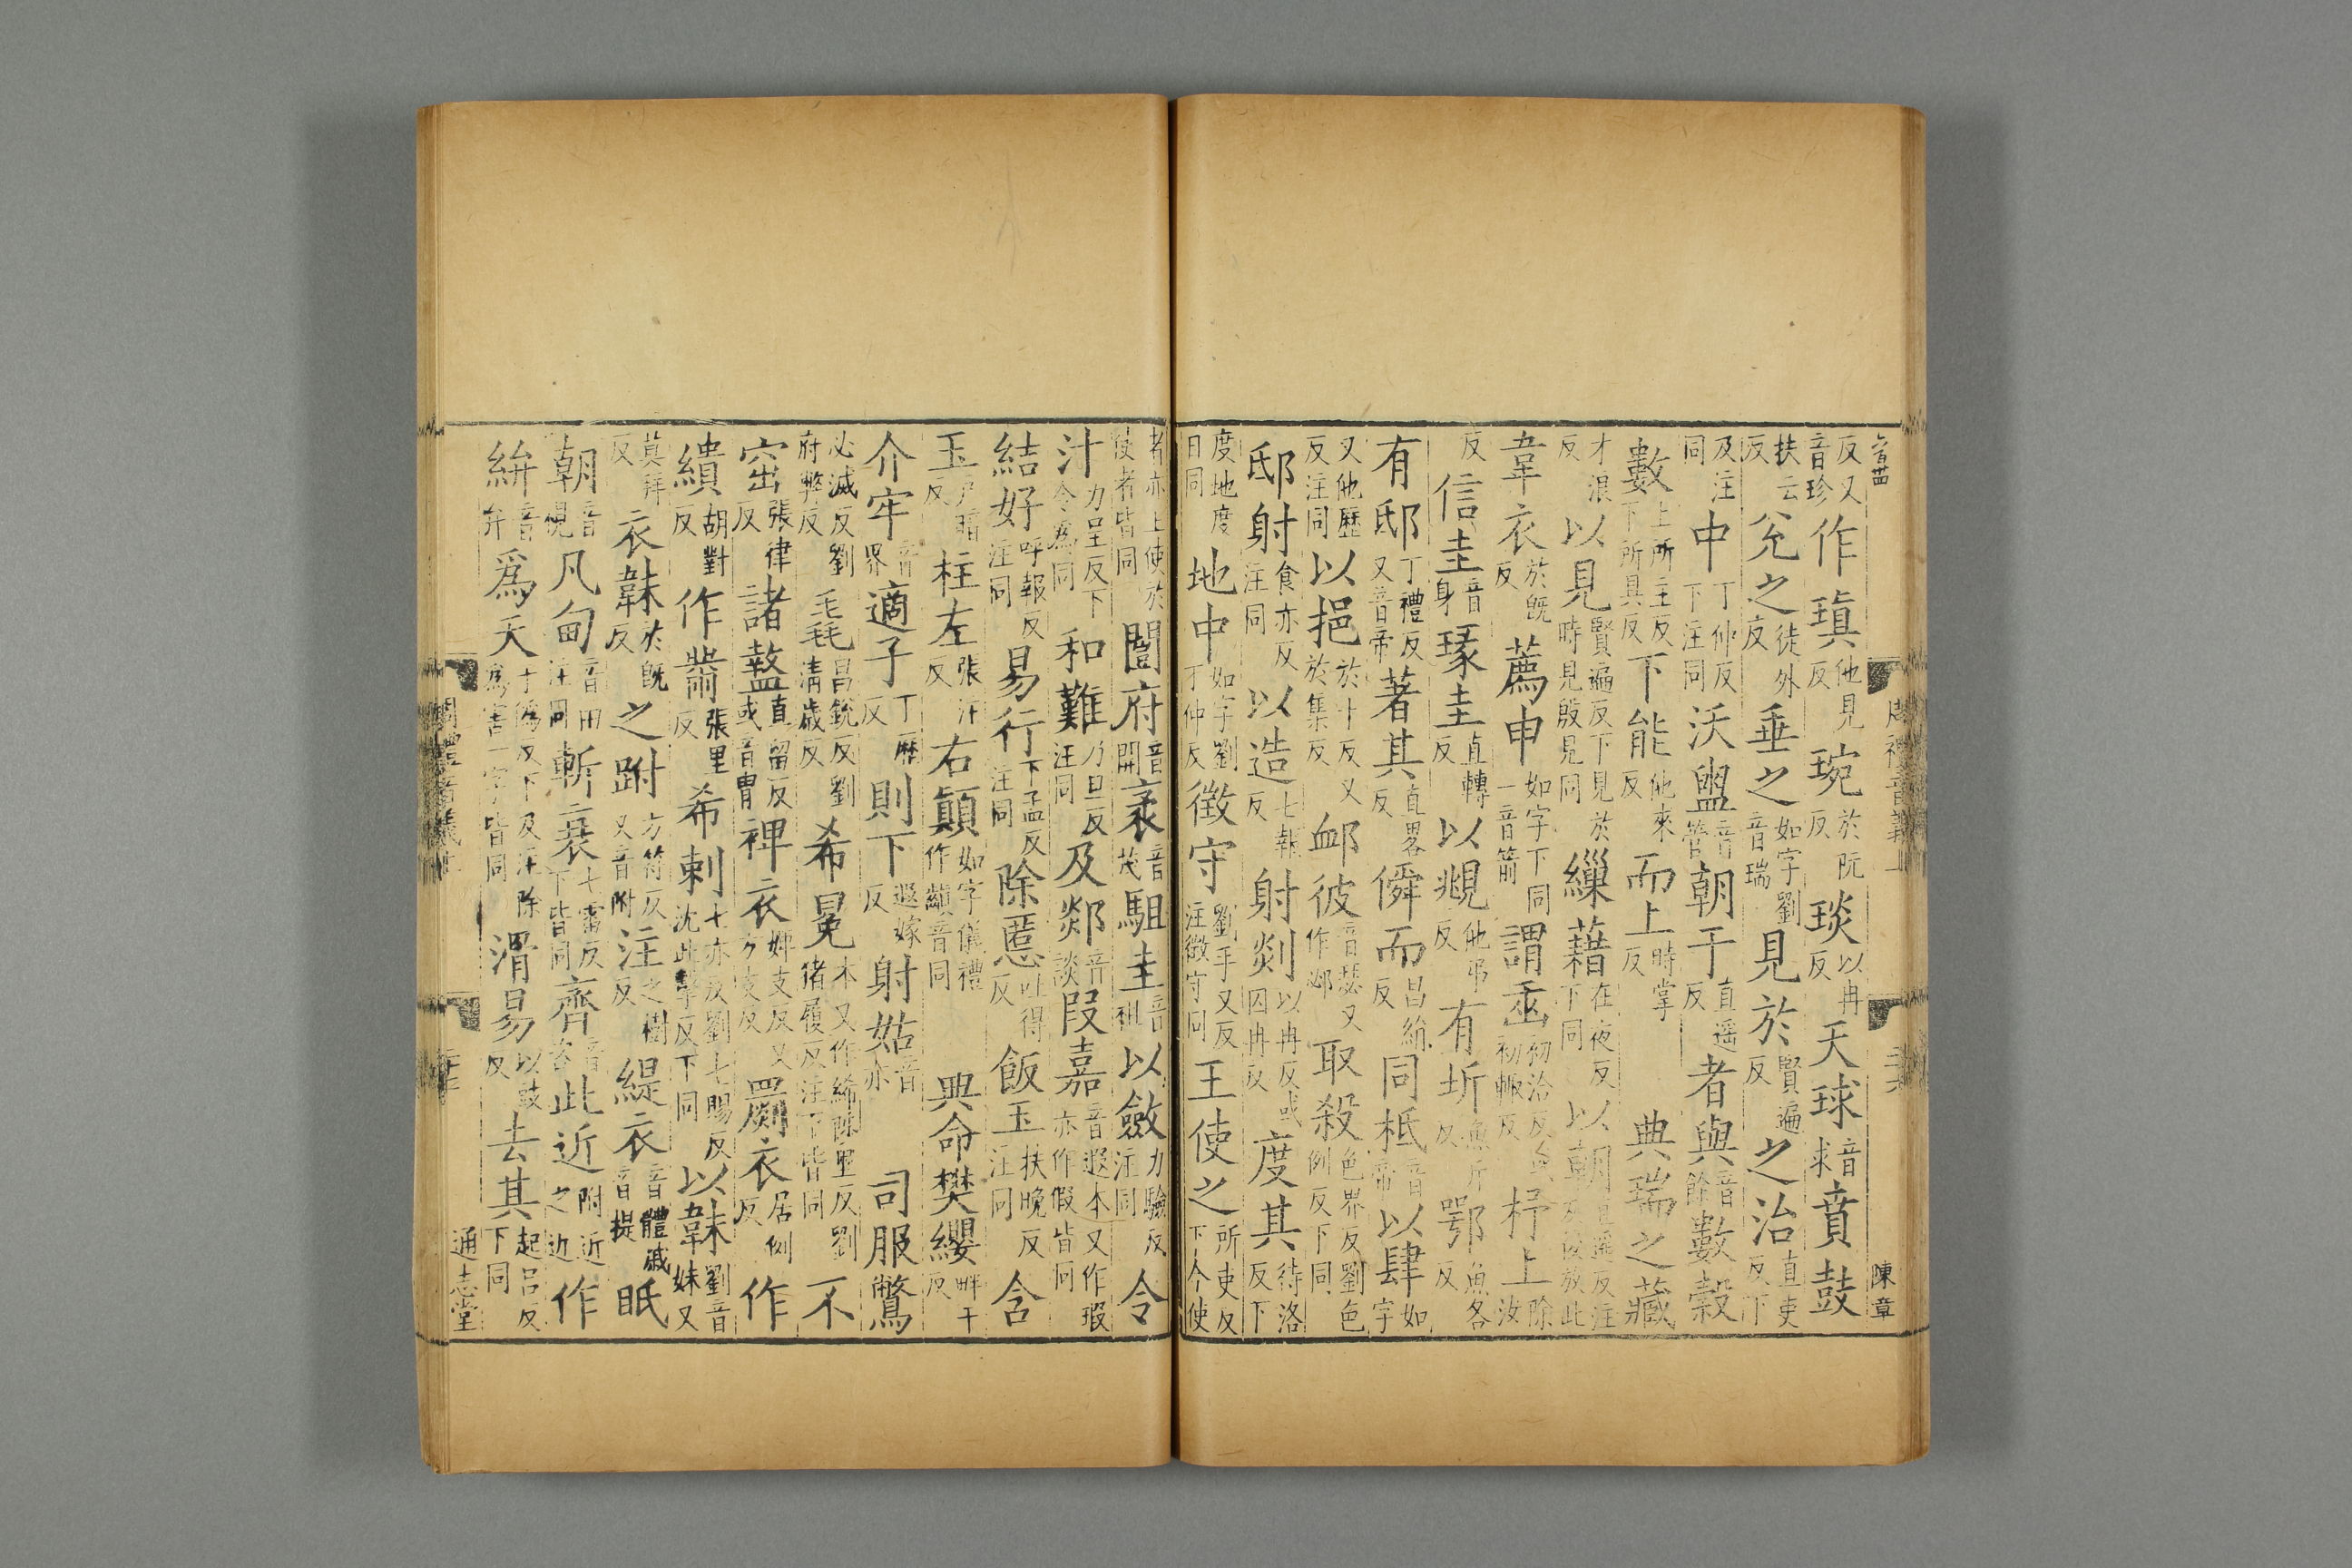 反又音珍作瑱他見反琬於阮反琰以冉反天球音求賁鼓
扶云反兊之徒外反垂之如字劉音瑞見於賢遍反之治直吏反下
及注同中丁仲反下注同沃盥音管朝于直遥反者與音餘數穀
數上所主反下所具反下能他來反而上時掌反典瑞之藏
才浪反以見賢遍反下見於時見殷見同繅藉在夜反下同以朝直遥反注及後放此
韋衣於既反薦申如字下同一音箭謂臿初洽反杼上除汝
反信圭音身瑑圭直轉反以覜他弔反有圻魚斤反鄂魚各反
有邸丁禮反又音帝著其直畧反僢而昌絹反同柢音帝以肆如字
又他歷反注同以挹於十反又於集反䘏彼音瑟又作䣝取殺色界反劉色例反下同
邸射食亦反注同以造七報反射剡以冉反或囚冉反度其待洛反下
度地度日同地中如字劉丁仲反徵守劉手又反注徵守同王使之所吏反下令使
者亦上使於使者皆同闓府音開袤音茂駔圭音祖以斂力驗反注同令
汁力呈反下令爲同和難乃旦反注同及郯音談叚嘉音遐本又作瑕亦作假皆同
結好呼報反注同易行下孟反注同除慝吐得反飯玉扶晚反注同含
玉户暗反柱左張主反右顛如字儀禮作𩕳音同典命樊纓畔干反
介牢音界適子丁歷反則下遐嫁反射姑音亦司服鷩
必滅反劉府弊反毳毛昌銳反劉清歲反希冕本又作絺陟里反劉猪履反注下皆同不
窋張律反諸盩直留反或音胄裨衣婢支反又方支反罽衣居例反作
繢胡對反作黹張里反希刺七亦反劉七賜反沈此擊反下同以韎劉音妹又
莫拜反衣韎於既反之跗方符反又音附注之樹反緹衣音體戚音提眂
朝音視凡甸音田注同斬衰七雷反下皆同齊音咨此近附近之近作
絣音弁爲天于僞反下及注除爲害一字皆同滑易以豉反去其起呂反下同
周禮音義上
陳章
通志堂